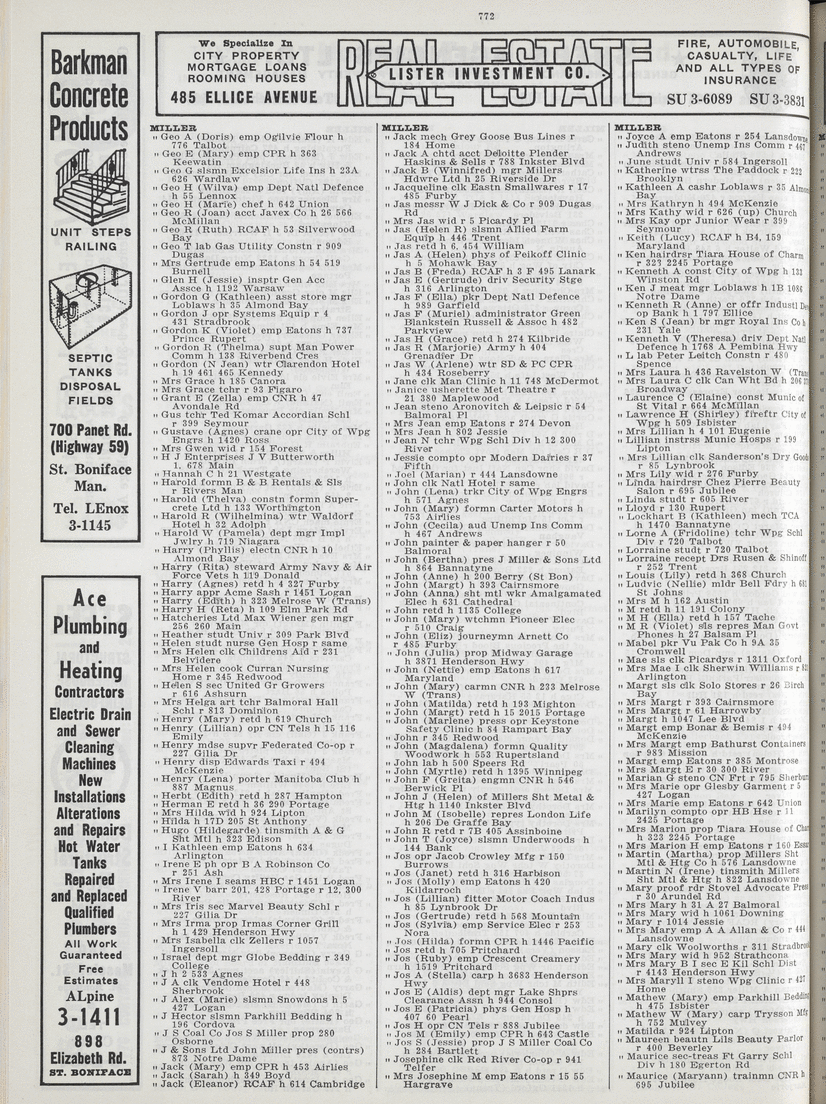 772
Barkman
Concrete
Products
UNIT STEPS
RAILING
SEPTIC
TANKS
DISPOSAL
FIELDS
700 Panet Rd.
(Highway 59)
St. Boniface
Man.
Tel. LEnox
3-1145
Ace
Plumbing
and
Heating
Contractors
Electric Drain
and Sewer
Cleaning
Machines
New
Installations
Alterations
and Repairs
Hot Water
Tanks
Repaired
and Replaced
Qualified
Plumbers
All Work
Guaranteed
Free
Estimates
ALpine
3-1411
898
Elizabeth Rd.
ST. BONIFACE
We Specialize In
CITY PROPERTY
MORTGAGE LOANS
ROOMING HOUSES
485 ELLICE AVENUE
REAL ESTATE
LISTER INVESTMENT CO.
FIRE, AUTOMOBILE,
CASUALTY, LIFE
AND ALL TYPES OF
INSURANCE
SU 3-6089 SU 3-3831
MILLER
" Geo A (Doris) emp Ogilvie Flour h
776 Talbot
" Geo E (Mary) emp CPR h 363
Keewatin
" Geo G slsmn Excelsior Life Ins h 23A
626 Wardlaw
" Geo H (Wilva) emp Dept Natl Defence
h 55 Lennox
" Geo H (Marie) chef h 642 Union
" Geo R (Joan) acct Javex Co h 26 566
McMillan
" Geo R (Ruth) RCAF h 53 Silverwood
Bay
" Geo T lab Gas Utility Constn r 909
Dugas
" Mrs Gertrude emp Eatons h 54 519
Burnell
" Glen H (Jessie) insptr Gen Acc
Assce h 1192 Warsaw
" Gordon G (Kathleen) asst store mgr
Loblaws h 35 Almond Bay
" Gordon J opr Systems Equip r 4
431 Stradbrook
" Gordon K (Violet) emp Eatons h 737
Prince Rupert
" Gordon R (Thelma) supt Man Power
Comm h 138 Riverbend Cres
" Gordon (N Jean) wtr Clarendon Hotel
h 19 461 465 Kennedy
" Mrs Grace h 185 Canora
" Mrs Grace tchr r 93 Figaro
" Grant E (Zella) emp CNR h 47
Avondale Rd
" Gus tchr Ted Komar Accordian Schl
r 399 Seymour
" Gustave (Agnes) crane opr City of Wpg
Engrs h 1420 Ross
" Mrs Gwen wid r 154 Forest
" H J Enterprises J V Butterworth
1, 678 Main
" Hannah C h 21 Westgate
" Harold formn B & B Rentals & Sls
r Rivers Man
" Harold (Thelva) constn formn Super-
crete Ltd h 133 Worthington
" Harold R (Wilhelmina) wtr Waldorf
Hotel h 32 Adolph
" Harold W (Pamela) dept mgr Impl
Jwlry h 719 Niagara
" Harry (Phyllis) electn CNR h 10
Almond Bay
" Harry (Rita) steward Army Navy & Air
Force Vets h 119 Donald
" Harry (Agnes) retd h 4 327 Furby
" Harry appr Acme Sash r 1451 Logan
" Harry (Edith) h 323 Melrose W (Trans)
" Harry H (Reta) h 109 Elm Park Rd
" Hatcheries Ltd Max Wiener gen mgr
256 260 Main
" Heather studt Univ r 309 Park Blvd
" Helen studt nurse Gen Hosp r same
" Mrs Helen clk Childrens Aid r 231
Belvidere
" Mrs Helen cook Curran Nursing
Home r 345 Redwood
" Helen S sec United Gr Growers
r 616 Ashburn
" Mrs Helga art tchr Balmoral Hall
Schl r 813 Dominion
" Henry (Mary) retd h 619 Church
" Henry (Lillian) opr CN Tels h 15 116
Emily
" Henry mdse supvr Federated Co-op r
227 Gilia Dr
" Henry disp Edwards Taxi r 494
McKenzie
" Henry (Lena) porter Manitoba Club h
887 Magnus
" Herbt (Edith) retd h 287 Hampton
" Herman E retd h 36 290 Portage
" Mrs Hilda wid r 924 Lipton
" Hilda h 17D 205 St Anthony
" Hugo (Hildegarde) tinsmith A & G
Sht Mtl h 323 Edison
" I Kathleen emp Eatons h 634
Arlington
" Irene E ph opr B A Robinson Co
r 251 Ash
" Mrs Irene I seams HBC r 1451 Logan
" Irene V barr 201, 428 Portage r 12, 300
River
" Mrs Iris sec Marvel Beauty Schl r
227 Gilia Dr
" Mrs Irma prop Irmas Corner Grill
h 1 429 Henderson Hwy
" Mrs Isabella clk Zellers r 1057
Ingersoll
" Israel dept mgr Globe Bedding r 349
College
" J h 2 533 Agnes
" J A clk Vendome Hotel r 448
Sherbrook
" J Alex (Marie) slsmn Snowdons h 5
427 Logan
" J Hector slsmn Parkhill Bedding h
196 Cordova
" J S Coal Co Jos S Miller prop 280
Osborne
" J & Sons Ltd John Miller pres (contrs)
873 Notre Dame
" Jack (Mary) emp CPR h 453 Airlies
" Jack (Sarah) h 349 Boyd
" Jack (Eleanor) RCAF h 614 Cambridge
MILLER
" Jack mech Grey Goose Bus Lines r
184 Home
" Jack A chtd acct Deloitte Plender
Haskins & Sells r 788 Inkster Blvd
" Jack B (Winnifred) mgr Millers
Hdwre Ltd h 25 Riverside Dr
" Jacqueline clk Eastn Smallwares r 17
485 Furby
" Jas messr W J Dick & Co r 909 Dugas
Rd
" Mrs Jas wid r 5 Picardy Pl
" Jas (Helen R) slsmn Allied Farm
Equip h 446 Trent
" Jas retd h 6, 454 William
" Jas A (Helen) phys of Peikoff Clinic
h 5 Mohawk Bay
" Jas B (Freda) RCAF h 3 F 495 Lanark
" Jas E (Gertrude) driv Security Stge
h 316 Arlington
" Jas F (Ella) pkr Dept Natl Defence
h 989 Garfield
" Jas F (Muriel) administrator Green
Blankstein Russell & Assoc h 482
Parkview
" Jas H (Grace) retd h 274 Kilbride
" Jas R (Marjorie) Army h 404
Grenadier Dr
" Jas W (Arlene) wtr SD & PC CPR
h 434 Roseberry
" Jane clk Man Clinic h 11 748 McDermot
" Janice usherette Met Theatre r
21 380 Maplewood
" Jean steno Aronovitch & Leipsic r 54
Balmoral Pl
" Mrs Jean emp Eatons r 274 Devon
" Mrs Jean h 802 Jessie
" Jean N tchr Wpg Schl Div h 12 300
River
" Jessie compto opr Modern Dairies r 37
Fifth
" Joel (Marian) r 444 Lansdowne
" John clk Natl Hotel r same
" John (Lena) trkr City of Wpg Engrs
h 571 Agnes
" John (Mary) formn Carter Motors h
753 Airlies
" John (Cecila) aud Unemp Ins Comm
h 467 Andrews
" John painter & paper hanger r 50
Balmoral
" John (Bertha) pres J Miller & Sons Ltd
h 864 Bannatyne
" John (Anne) h 200 Berry (St Bon)
" John (Margt) h 393 Cairnsmore
" John (Anna) sht mtl wkr Amalgamated
Elec h 631 Cathedral
" John retd h 1135 College
" John (Mary) wtchmn Pioneer Elec
r 510 Craig
" John (Eliz) journeymn Arnett Co
r 485 Furby
" John (Julia) prop Midway Garage
h 3871 Henderson Hwy
" John (Nettie) emp Eatons h 617
Maryland
" John (Mary) carmn CNR h 233 Melrose
W (Trans)
" John (Matilda) retd h 193 Mighton
" John (Margt) retd h 15 2015 Portage
" John (Marlene) press opr Keystone
Safety Clinic h 84 Rampart Bay
" John r 345 Redwood
" John (Magdalena) formn Quality
Woodwork h 553 Rupertsland
" John lab h 500 Speers Rd
" John (Myrtle) retd h 1395 Winnipeg
" John F (Greita) engmn CNR h 546
Berwick Pl
" John J (Helen) of Millers Sht Metal &
Htg h 1140 Inkster Blvd
" John M (Isobelle) repres London Life
h 206 De Graffe Bay
" John R retd r 7B 405 Assinboine
" John T (Joyce) slsmn Underwoods h
144 Bank
" Jos opr Jacob Crowley Mfg r 150
Burrows
" Jos (Janet) retd h 316 Harbison
" Jos (Molly) emp Eatons h 420
Kildarroch
" Jos (Lillian) fitter Motor Coach Indus
h 85 Lynbrook Dr
" Jos (Gertrude) retd h 568 Mountain
" Jos (Sylvia) emp Service Elec r 253
Nora
" Jos (Hilda) formn CPR h 1446 Pacific
" Jos retd h 705 Pritchard
" Jos (Ruby) emp Crescent Creamery
h 1519 Pritchard
" Jos A (Stella) carp h 3683 Henderson
Hwy
" Jos E (Aldis) dept mgr Lake Shprs
Clearance Assn h 944 Consol
" Jos E (Patricia) phys Gen Hosp h
407 60 Pearl
" Jos H opr CN Tels r 888 Jubilee
" Jos M (Emily) emp CPR h 643 Castle
" Jos S (Jessie) prop J S Miller Coal Co
h 284 Bartlett
" Josephine clk Red River Co-op r 941
Telfer
" Mrs Josephine M emp Eatons r 15 55
Hargrave
MILLER
" Joyce A emp Eatons r 254 Lansdowne
" Judith steno Unemp Ins Comm r 467
Andrews
" June studt Univ r 584 Ingersoll
" Katherine wtrss The Paddock r 222
Brooklyn
" Kathleen A cashr Loblaws r 35 Almond
Bay
" Mrs Kathryn h 494 McKenzie
" Mrs Kathy wid r 626 (up) Church
" Mrs Kay opr Junior Wear r 399
Seymour
" Keith (Lucy) RCAF h B4, 159
Maryland
" Ken hairdrsr Tiara House of Charm
r 323 2245 Portage
" Kenneth A const City of Wpg h 131
Winston Rd
" Ken J meat mgr Loblaws h 1B 1086
Notre Dame
" Kenneth R (Anne) cr offr Industl Dev
op Bank h 1 797 Ellice
" Ken S (Jean) br mgr Royal Ins Co h
231 Yale
" Kenneth V (Theresa) driv Dept Natl
Defence h 1768 A Pembina Hwy
" L lab Peter Leitch Constn r 480
Spence
" Mrs Laura h 436 Ravelston W (Trans
" Mrs Laura C clk Can Wht Bd h 206
Broadway
" Laurence C (Elaine) const Munic of
St Vital r 664 McMillan
" Lawrence H (Shirley) fireftr City of
Wpg h 509 Isbister
" Mrs Lillian h 4 101 Eugenie
" Lillian instrss Munic Hosps r 199
Lipton
" Mrs Lillian clk Sanderson's Dry Goods
r 85 Lynbrook
" Mrs Lily wid r 276 Furby
" Linda hairdrsr Chez Pierre Beauty
Salon r 695 Jubilee
" Linda studt r 605 River
" Lloyd r 130 Rupert
" Lockhart B (Kathleen) mech TCA
h 1470 Bannatyne
" Lorne A (Fridoline) tchr Wpg Schl
Div r 720 Talbot
" Lorraine studt r 720 Talbot
" Lorraine recept Drs Rusen & Shinoff
r 252 Trent
" Louis (Lily) retd h 368 Church
" Ludvic (Nellie) mldr Bell Fdry h 681
St Johns
" Mrs M h 162 Austin
" M retd h 11 191 Colony
" M H (Ella) retd h 157 Tache
" M R (Violet) sls repres Man Govt
Phones h 27 Balsam Pl
" Mabel pkr Vu Pak Co h 9A 35
Cromwell
" Mae sls clk Picardys r 1311 Oxford
" Mrs Mae I clk Sherwin Williams r
Arlington
" Margt sls clk Solo Stores r 26 Birch
Bay
" Mrs Margt r 393 Cairnsmore
" Mrs Margt r 61 Harrowby
" Margt h 1047 Lee Blvd
" Margt emp Bonar & Bemis r 494
McKenzie
" Mrs Margt emp Bathurst Containers
r 983 Mission
" Margt emp Eatons r 385 Montrose
" Mrs Margt E r 30 300 River
" Marian G steno CN Frt r 795 Sherburn
" Mrs Marie opr Glesby Garment r 5
427 Logan
" Mrs Marie emp Eatons r 642 Union
" Marilyn compto opr HB Hse r 11
2425 Portage
" Mrs Marion prop Tiara House of Charm
h 323 2245 Portage
" Mrs Marion H emp Eatons r 160 Essar
" Martin (Martha) prop Millers Sht
Mtl & Htg Co h 576 Lansdowne
" Martin N (Irene) tinsmith Millers
Sht Mtl & Htg h 822 Lansdowne
" Mary proof rdr Stovel Advocate Press
r 30 Arundel Rd
" Mrs Mary h 31 A 27 Balmoral
" Mrs Mary wid h 1061 Downing
" Mary r 1014 Jessie
" Mrs Mary emp A A Allan & Co r 444
Lansdowne
" Mary clk Woolworths r 311 Stradbrook
" Mrs Mary wid h 952 Strathcona
" Mrs Mary B I sec E Kil Schl Dist
r 4143 Henderson Hwy
" Mrs Maryll I steno Wpg Clinic r 427
Home
" Mathew (Mary) emp Parkhill Bedding
h 475 Isbister
" Mathew W (Mary) carp Trysson Mfg
h 752 Mulvey
" Matilda r 924 Lipton
" Maureen beautn Lils Beauty Parlor
r 400 Beverley
" Maurice sec-treas Ft Garry Schl
Div h 180 Egerton Rd
" Maurice (Maryann) trainmn CNR h
695 Jubilee